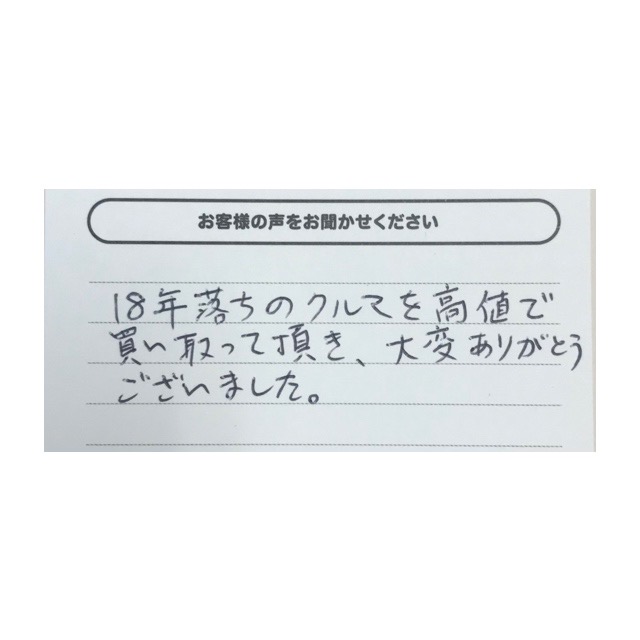 お客様の声をお聞かせください
18年落ちのクルマを高値で
買い取って頂き、大変ありがとう
ございました。